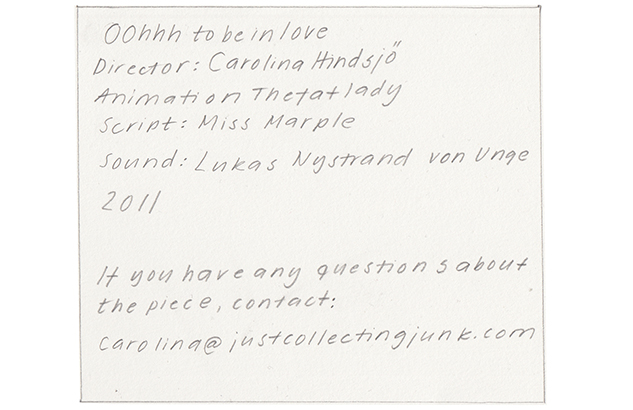 Oohhh to be in love
Director: Carolina Hindsjö
Animation Thefatlady
Script: Miss Marple
Sound: Lukas Nystrand von Unge
2011
If you have any questions about
the piece, contact:
carolina@justcollectingjunk.com